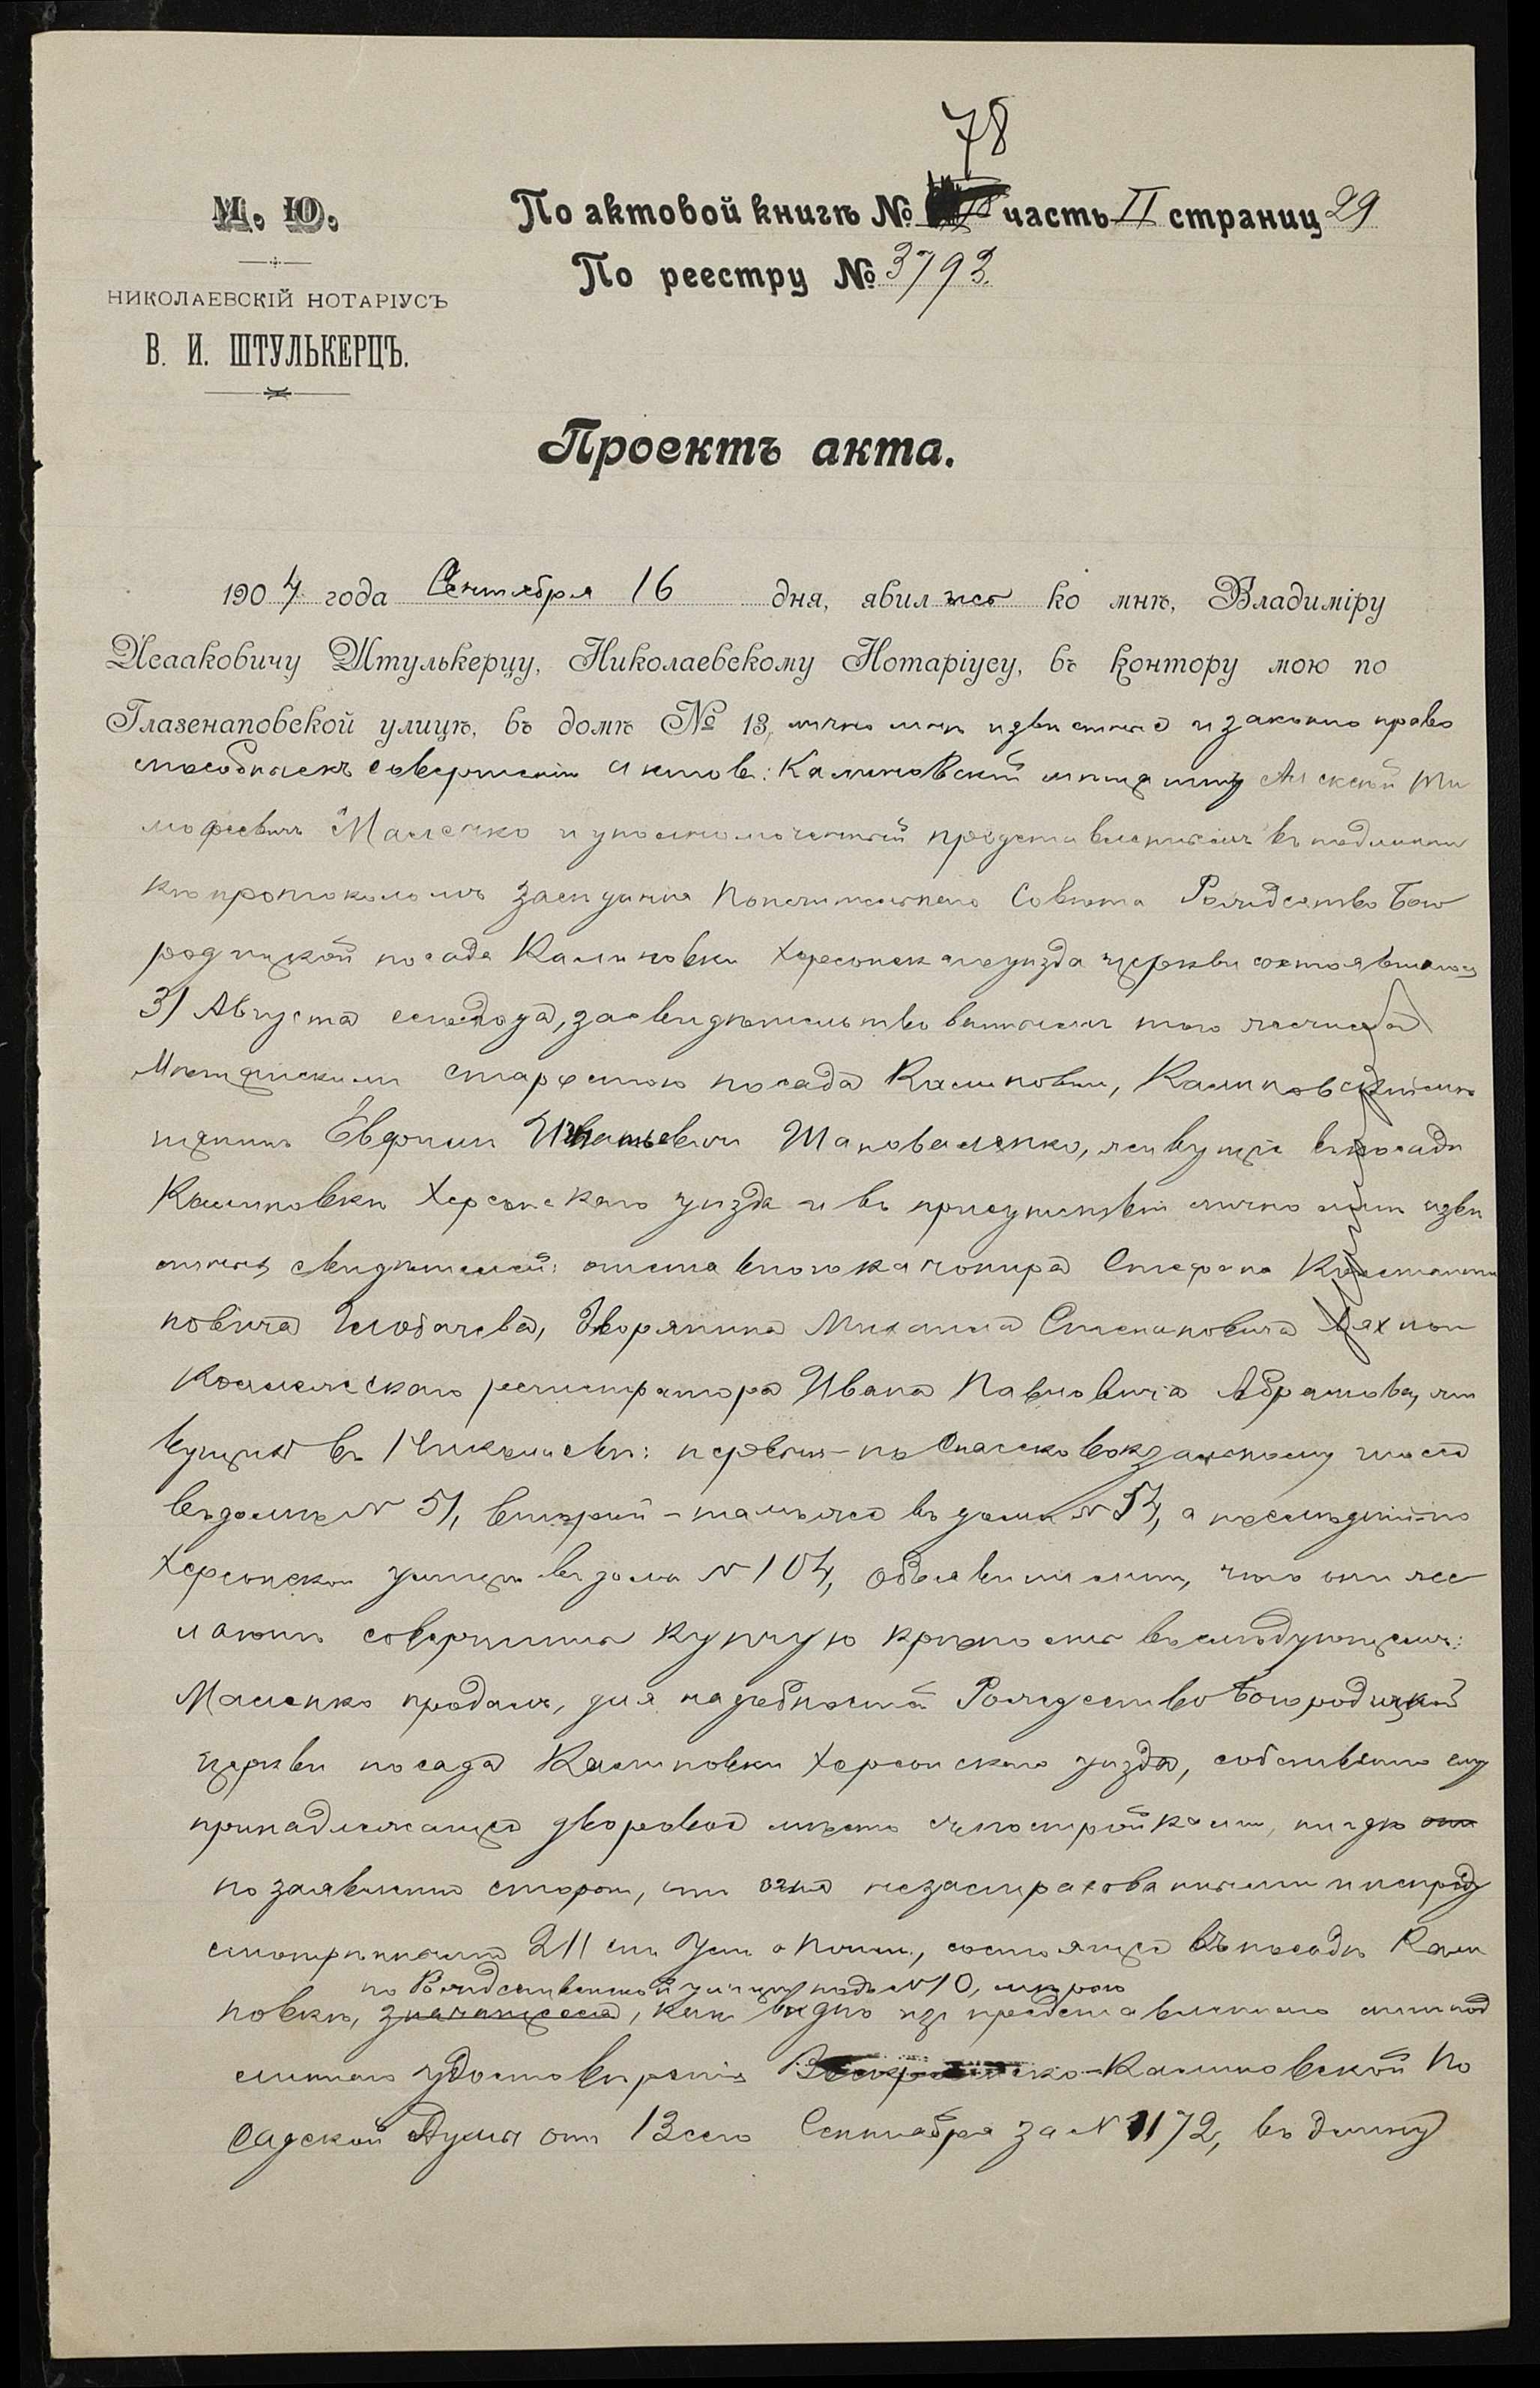 78
М. Ю.
По актовой книгѣ № часть II страниц 29
По реестру № 3793.
НИКОЛАЕВСКІЙ НОТАРІУСЪ
В. И. ШТУЛЬКЕРЦЪ.
Проектъ акта.
1904 года Сентября 16 дня, явились ко мнѣ, Владиміру
Исааковичу Штулькерцу, Николаевскому Нотаріусу, въ контору мою по
Глазенаповской улицѣ, въ домѣ № 13, лично мнѣ извѣстные и законно право
способныекъ совершенію актовъ: Калиновскій мѣщанинъ Алексѣй Ти
мофеевичъ Маленко и уполномоченный представленнымъ въ подлинни
кѣ протоколомъ засѣданія Попечительнаго Совѣта Рождество Бого
родицкой посада Калиновки Херсонскаго уѣзда церкви состоявшагося
31 Августа сего года, засвидѣтельствованнымъ того же числа
Мѣщанскимъ старостою посада Калиновки, Калиновскій мѣ
щанинъ Евфимъ Игнатьевичъ Шаповаленко, живущіе въ посадѣ
Калиновкѣ Херсонскаго уѣзда и въ присутствіи лично мнѣ извѣ
стныхъ свидѣтелей: отставного канонира Стефана Константи
новича Глобачева, Дворянина Михаила Степановича и
Коллежскаго регистратора Ивана Павловича Абрамова, жи
вущихъ въ Николаевѣ: первый - по Спасско вокзальному шоссе
въ домѣ № 51, второй - тамъ же въ домѣ № 54, а послѣдній - по
Херсонской улицѣ въ домѣ № 104, объявили мнѣ, что они же
лаютъ совершить купчую крѣпость въ слѣдующемъ:
Маленко продалъ, для надобности Рождество Богородицкой
церкви посада Калиновки Херсонскаго уѣзда, собственно ему
принадлежащее дворовое мѣсто съ постройками, нигдѣ
по заявленію сторонъ, отъ огня незастрахованными и непреду
смотрѣнными 211 ст. Уст. о Пошл., состоящее въ посадѣ Кали
по Рождественской улицѣ подъ № 10, мѣрою
новкѣ, значащееся, какъ видно изъ представленнаго мнѣ под
линнаго удостовѣренія Калиновской По
садской Думы отъ 13 сего Сентября за № 1172, въ длину